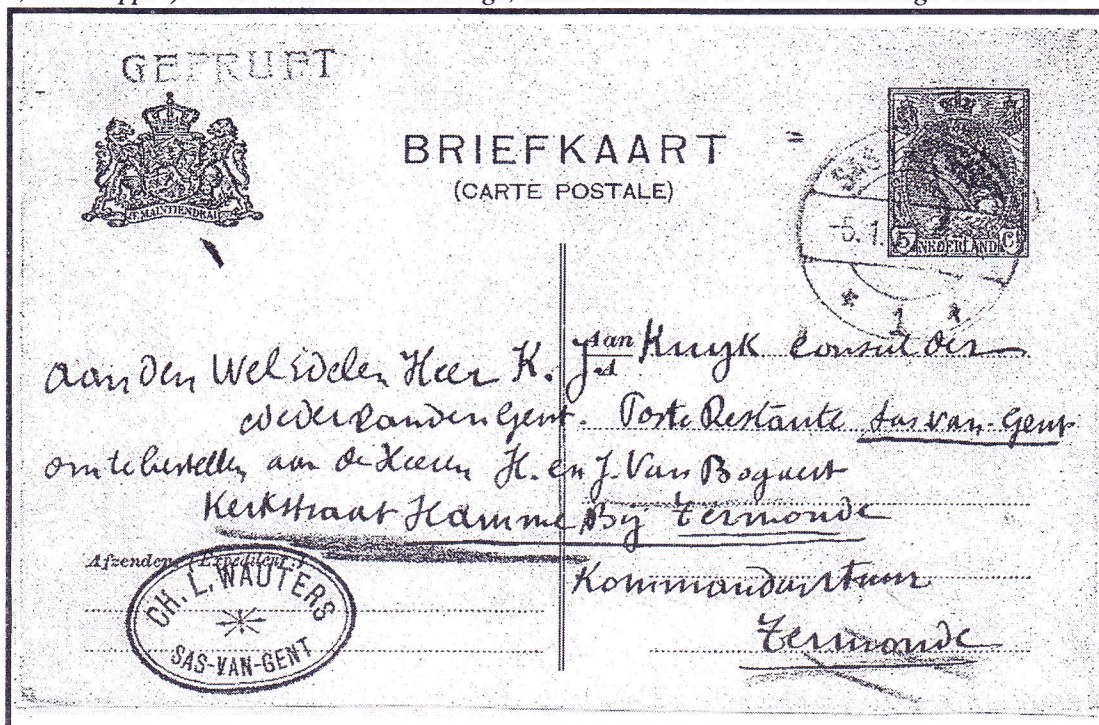 GEPRUFT
JE MAINTIENDRAI
BRIEFKAART
(CARTE POSTALE)
5 NEDERLAND C
-5.1.
1
Aan
aan den WelEdelen Heer K. J. Kuyk Consul der
Nederlanden Gent. Poste Restante Sas van-Gent
om te bestellen aan de Heeren H. en J. Van Bogaert
Kerkstraat Hamme By Termonde
Afzender (Expéditeur)
Kommandantuur
Termonde
CH. L. WAUTERS
SAS-VAN-GENT